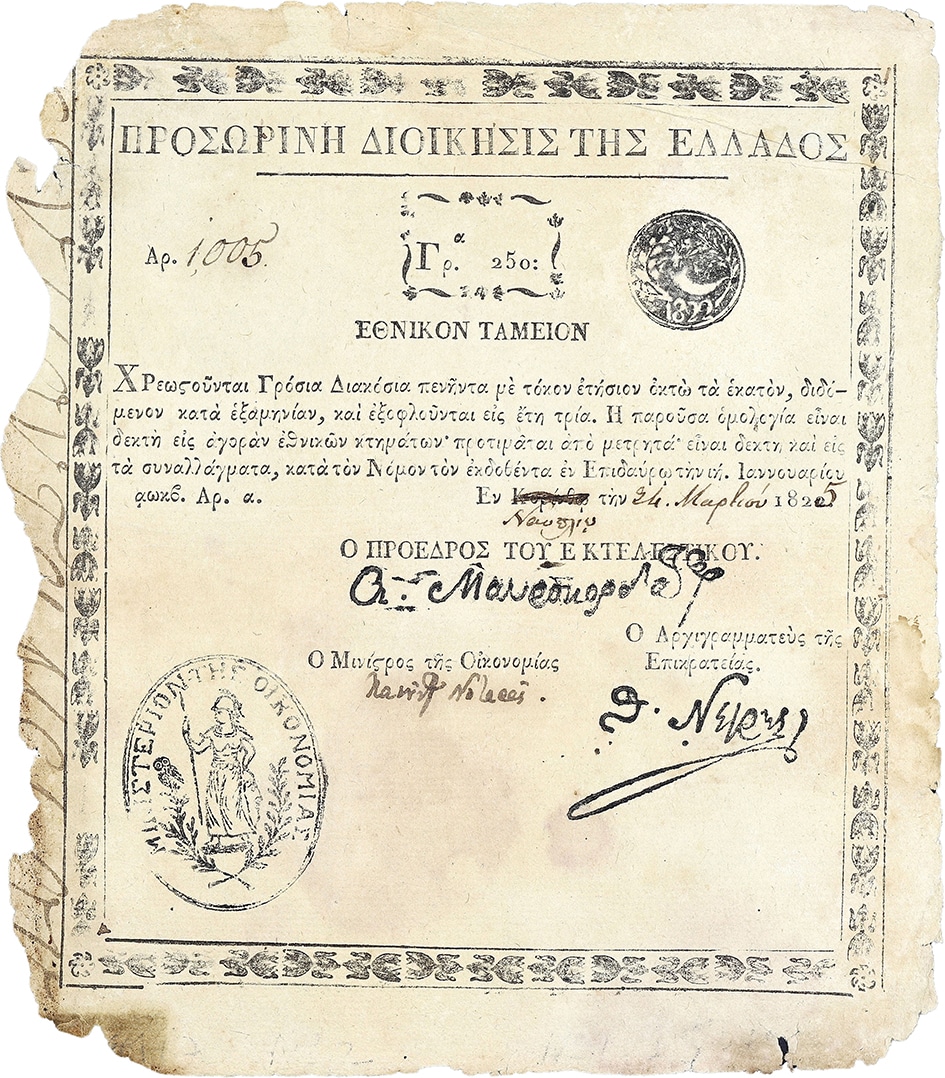 ΠΡΟΣΩΡΙΝΗ ΔΙΟΙΚΗΣΙΣ ΤΗΣ ΕΛΛΑΔΟΣ
Αρ. 1,005.
Γρ.α 250:
1822
ΕΘΝΙΚΟΝ ΤΑΜΕΙΟΝ
ΧΡεωςοῦνται Γρόσια Διακόσια πενῆντα μὲ τόκον ἐτήσιον ὀκτὼ τὰ ἑκατὸν, διδό-
μενον κατὰ ἑξαμηνίαν, καὶ ἐξοφλοῦνται εἰς ἔτη τρία. Ἡ παροῦσα ὁμολογία εἶναι
δεκτὴ εἰς ἀγορὰν ἐθνικῶν κτημάτων· προτιμᾶται ἀπὸ μετρητά· εἶναι δεκτὴ καὶ εἰς
τὰ συναλλάγματα, κατὰ τὸν Νόμον τὸν ἐκδοθέντα ἐν Επιδαύρῳ τὴν ιή. Ιαννουαρίου
αωκβ. Αρ. α. Εν Κορίνθῳ τὴν 24. Μαρτίου 1825
Ναυπλίῳ
Ο ΠΡΟΕΔΡΟΣ ΤΟΥ ΕΚΤΕΛΕΣΤΙΚΟΥ.
Α: Μαυροκορδάτος
Ο Αρχιγραμματεὺς τῆς
Επικρατείας.
Ο Μινίςρος τῆς Οἰκονομίας
Νοταρᾶς.
Θ. Νέγρης
ΜΙΝΙΣΤΕΡΙΟΝ ΤΗΣ ΟΙΚΟΝΟΜΙΑΣ